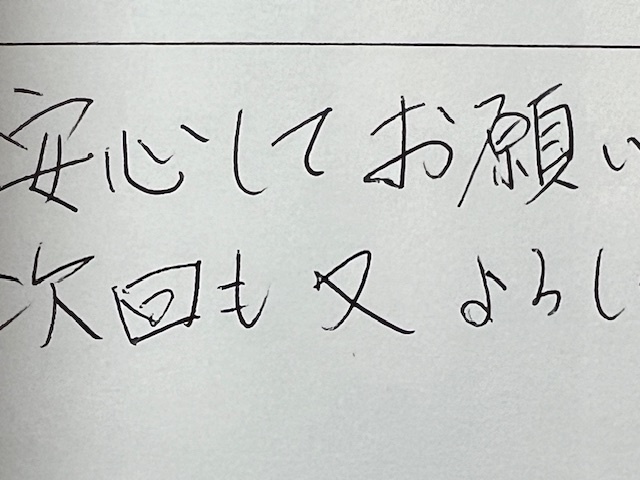 安心してお願い
次回も又よろし